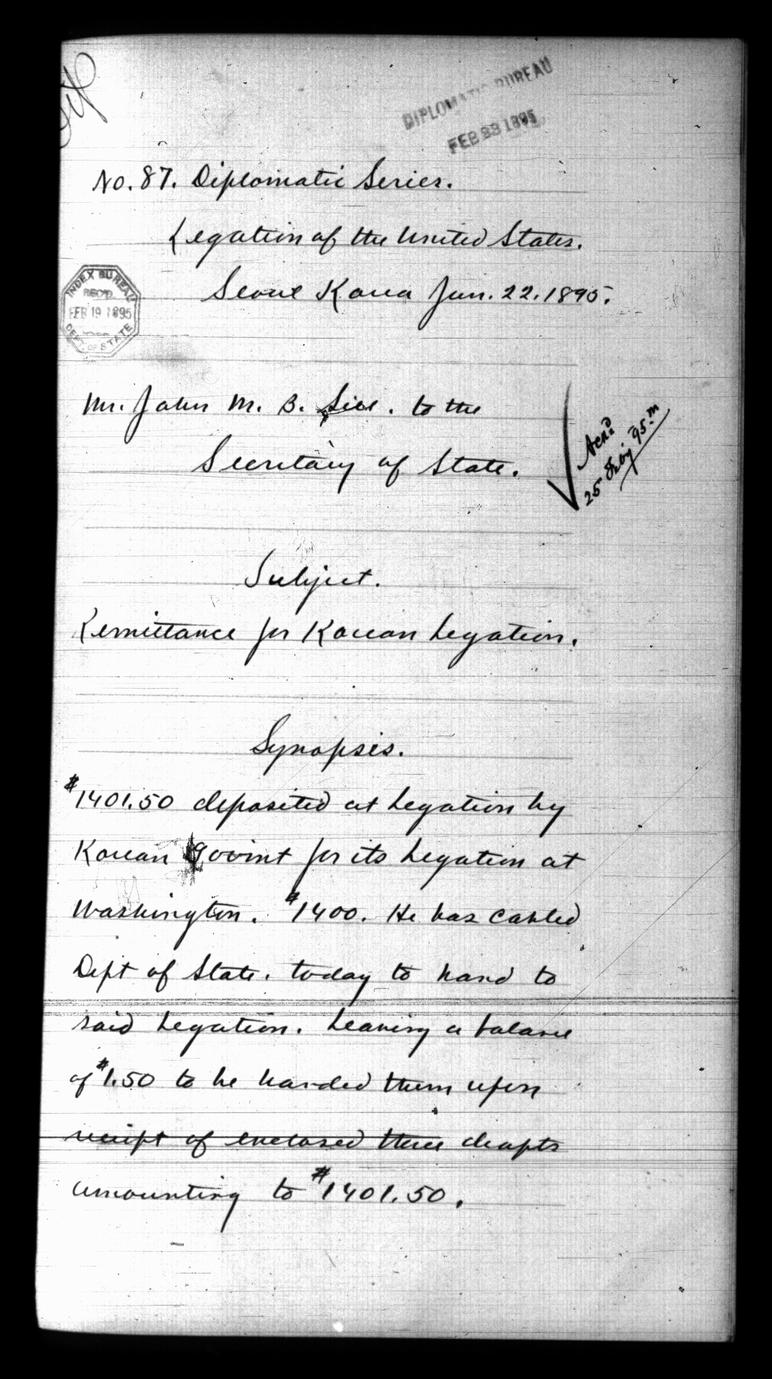 DIPLOMATIC BUREAU
FEB 23 1895
No. 87. Diplomatic Series.
Legation of the United States.
Seoul Korea Jan. 22. 1895.
INDEX BUREAU
REC'D
FEB 19 1895
DEPT. OF STATE
Mr. John M. B. Sill. to the
Secretary of State.
Ackd
25 Feby 95
Subject.
Remittance for Korean Legation.
Synopsis.
$1401.50 deposited at Legation by
Korean Govmt for its Legation at
Washington. $1400. He has cabled
Dept of State. today to hand to
said Legation. Leaving a balance
of $1.50 to be handed them upon
receipt of enclosed three drafts
amounting to $1401.50.